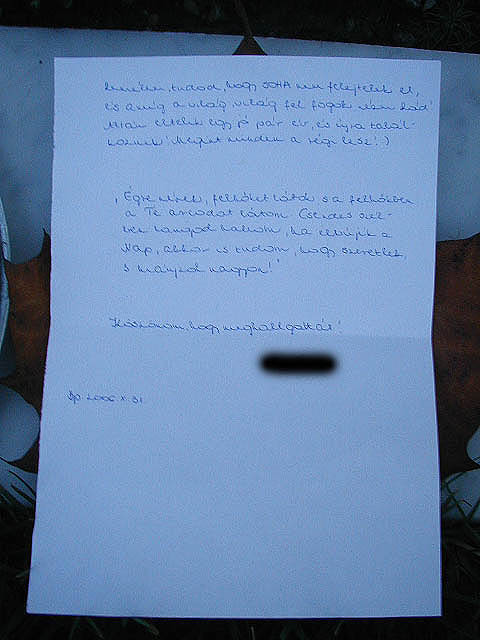 Remélem, tudod, hogy SOHA nem felejtelek el,
és amíg a világ, világ fel fogok nézni Rád!
Majd eltelik egy pár év, és újra talál-
kozunk! Megint minden a régi lesz! :)
"Égre nézek, felhőket látok s a felhőkben
a Te arcodat látom. Csendes szél-
ben hangod hallom, ha eltűnik a
Nap, akkor is tudom, hogy szeretlek
s hiányzol nagyon!"
Köszönöm, hogy meghallgattál!
Bp. 2006 X 31